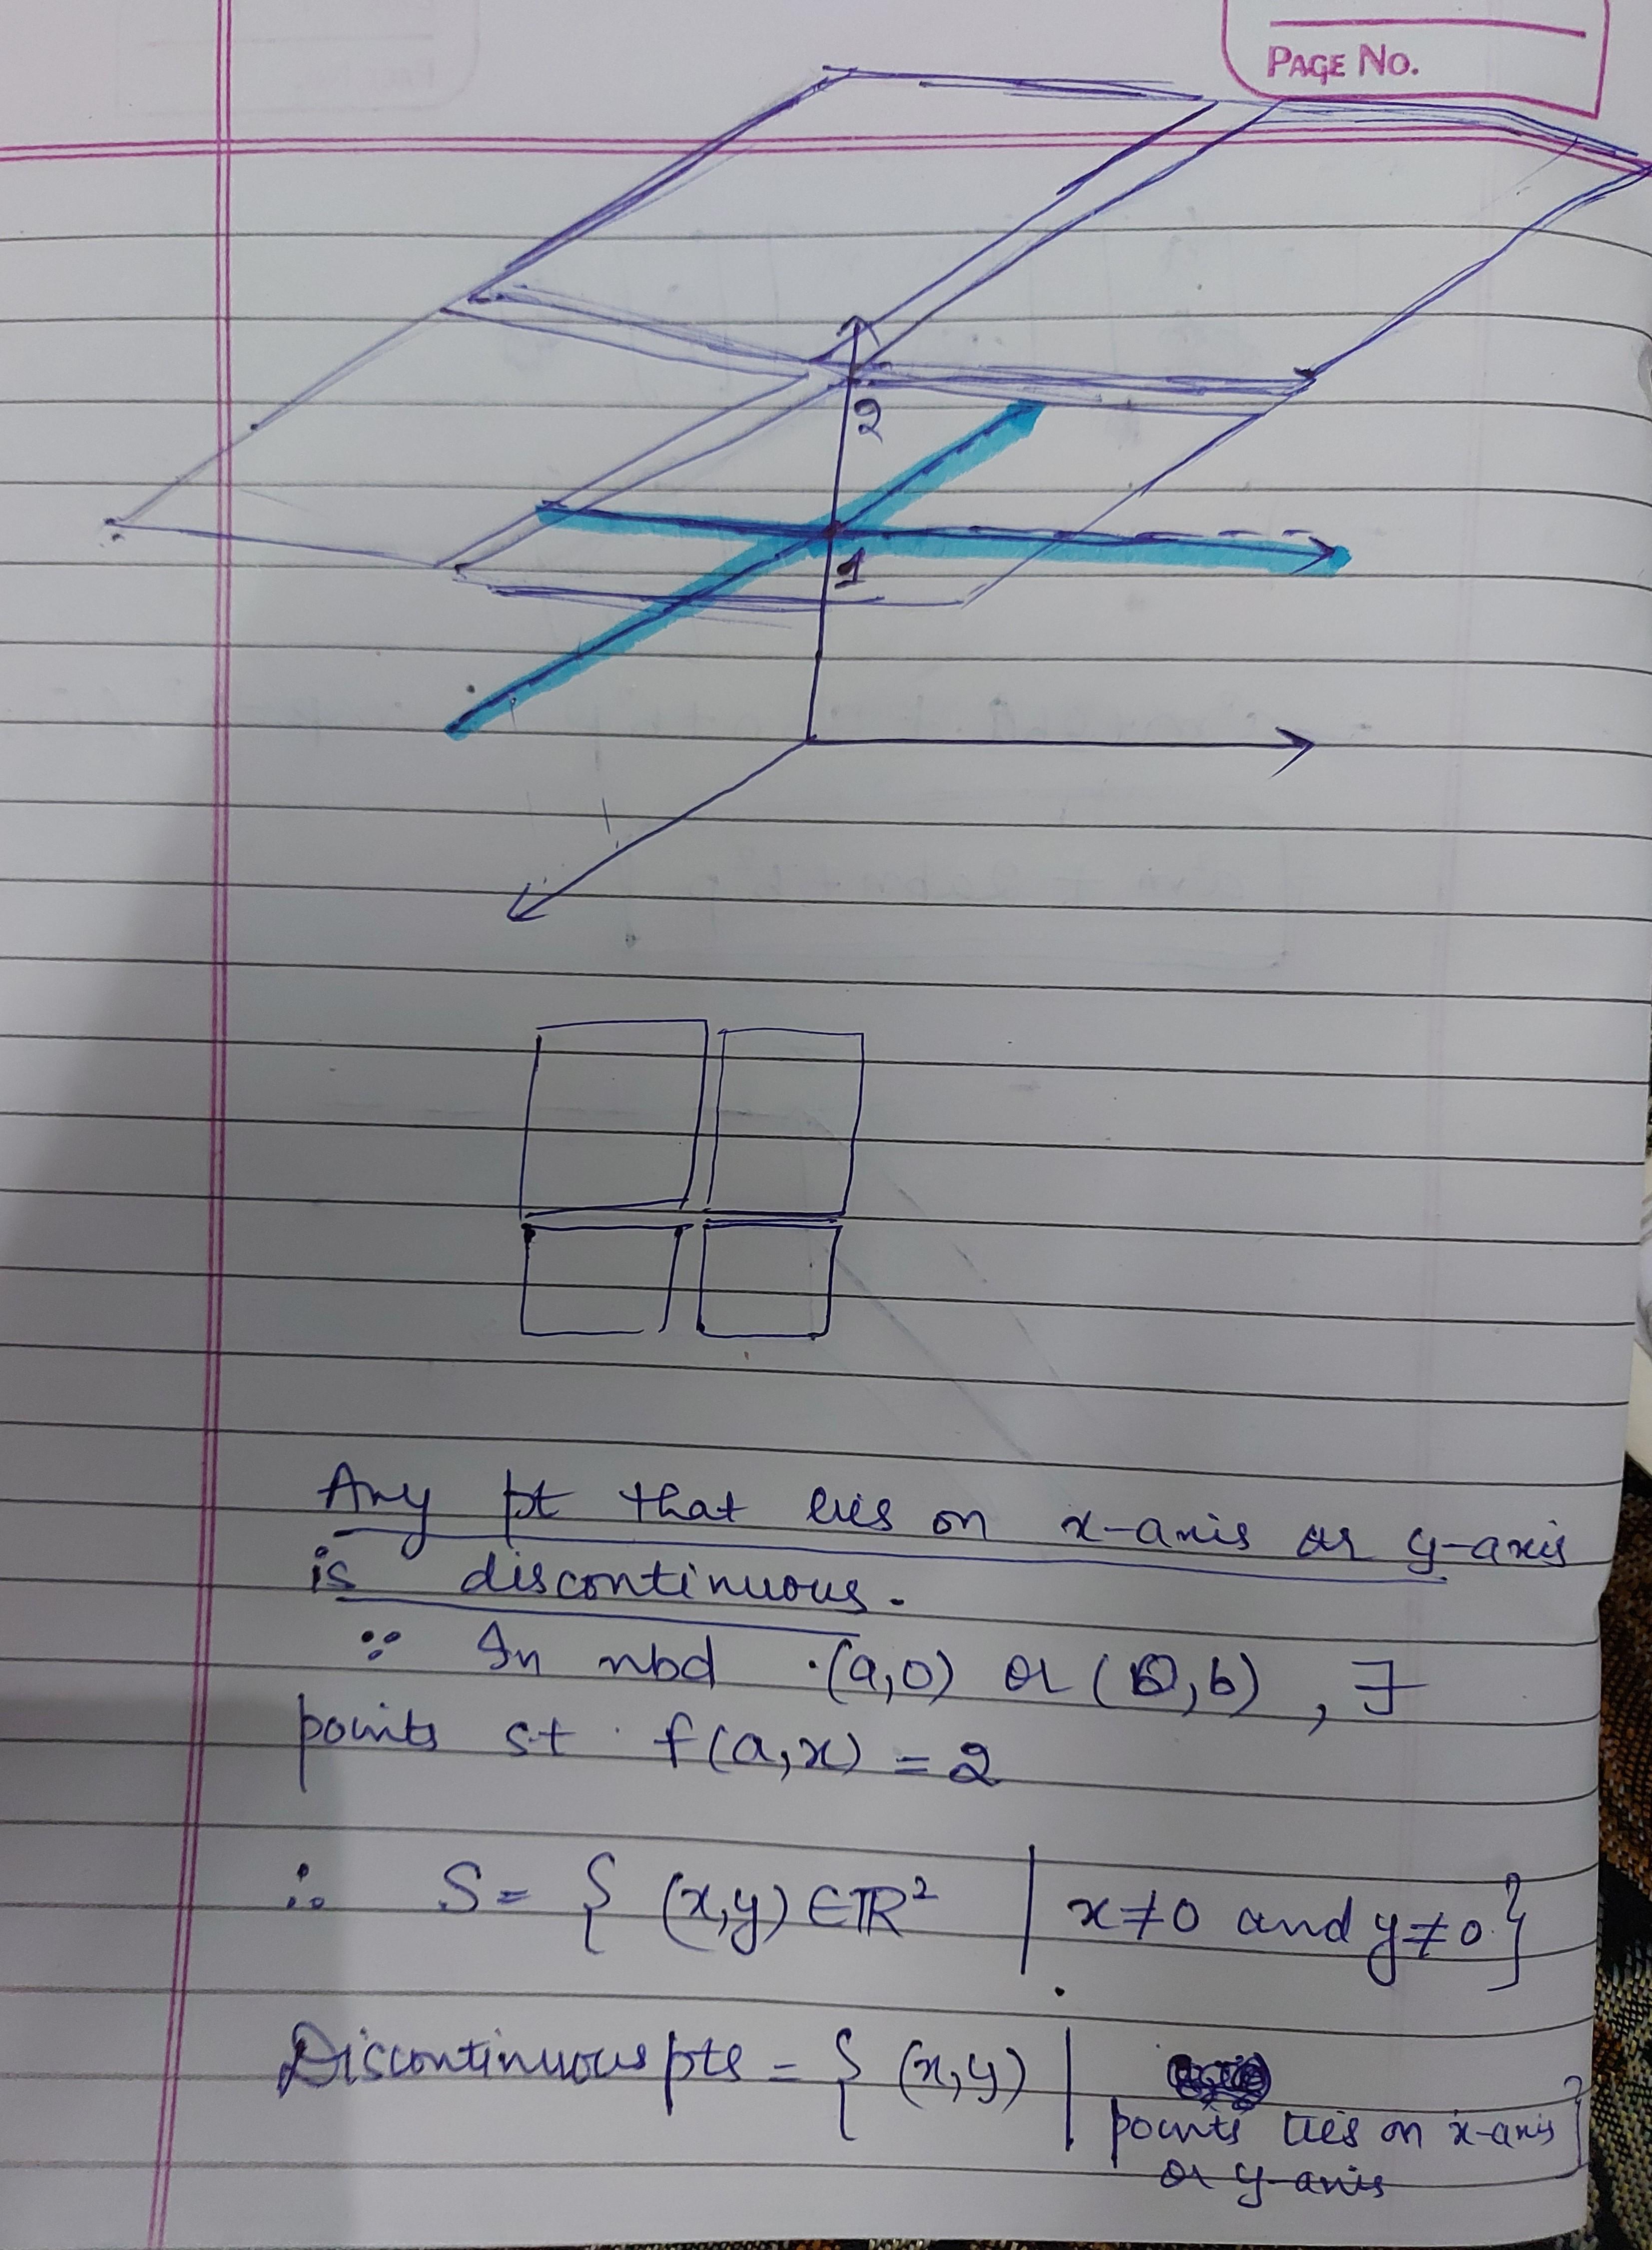 PAGE NO.
2
1
Any pt that lies on x-axis or y-axis
is discontinuous.
∵ In nbd .(a,0) or (0,b) , ∃
points st f(a,x) = 2
∴ S = { (x,y) ∈ ℝ² | x≠0 and y≠0}
Discontinuous pts = { (x,y) |
points lies on x-axis }
or y-axis